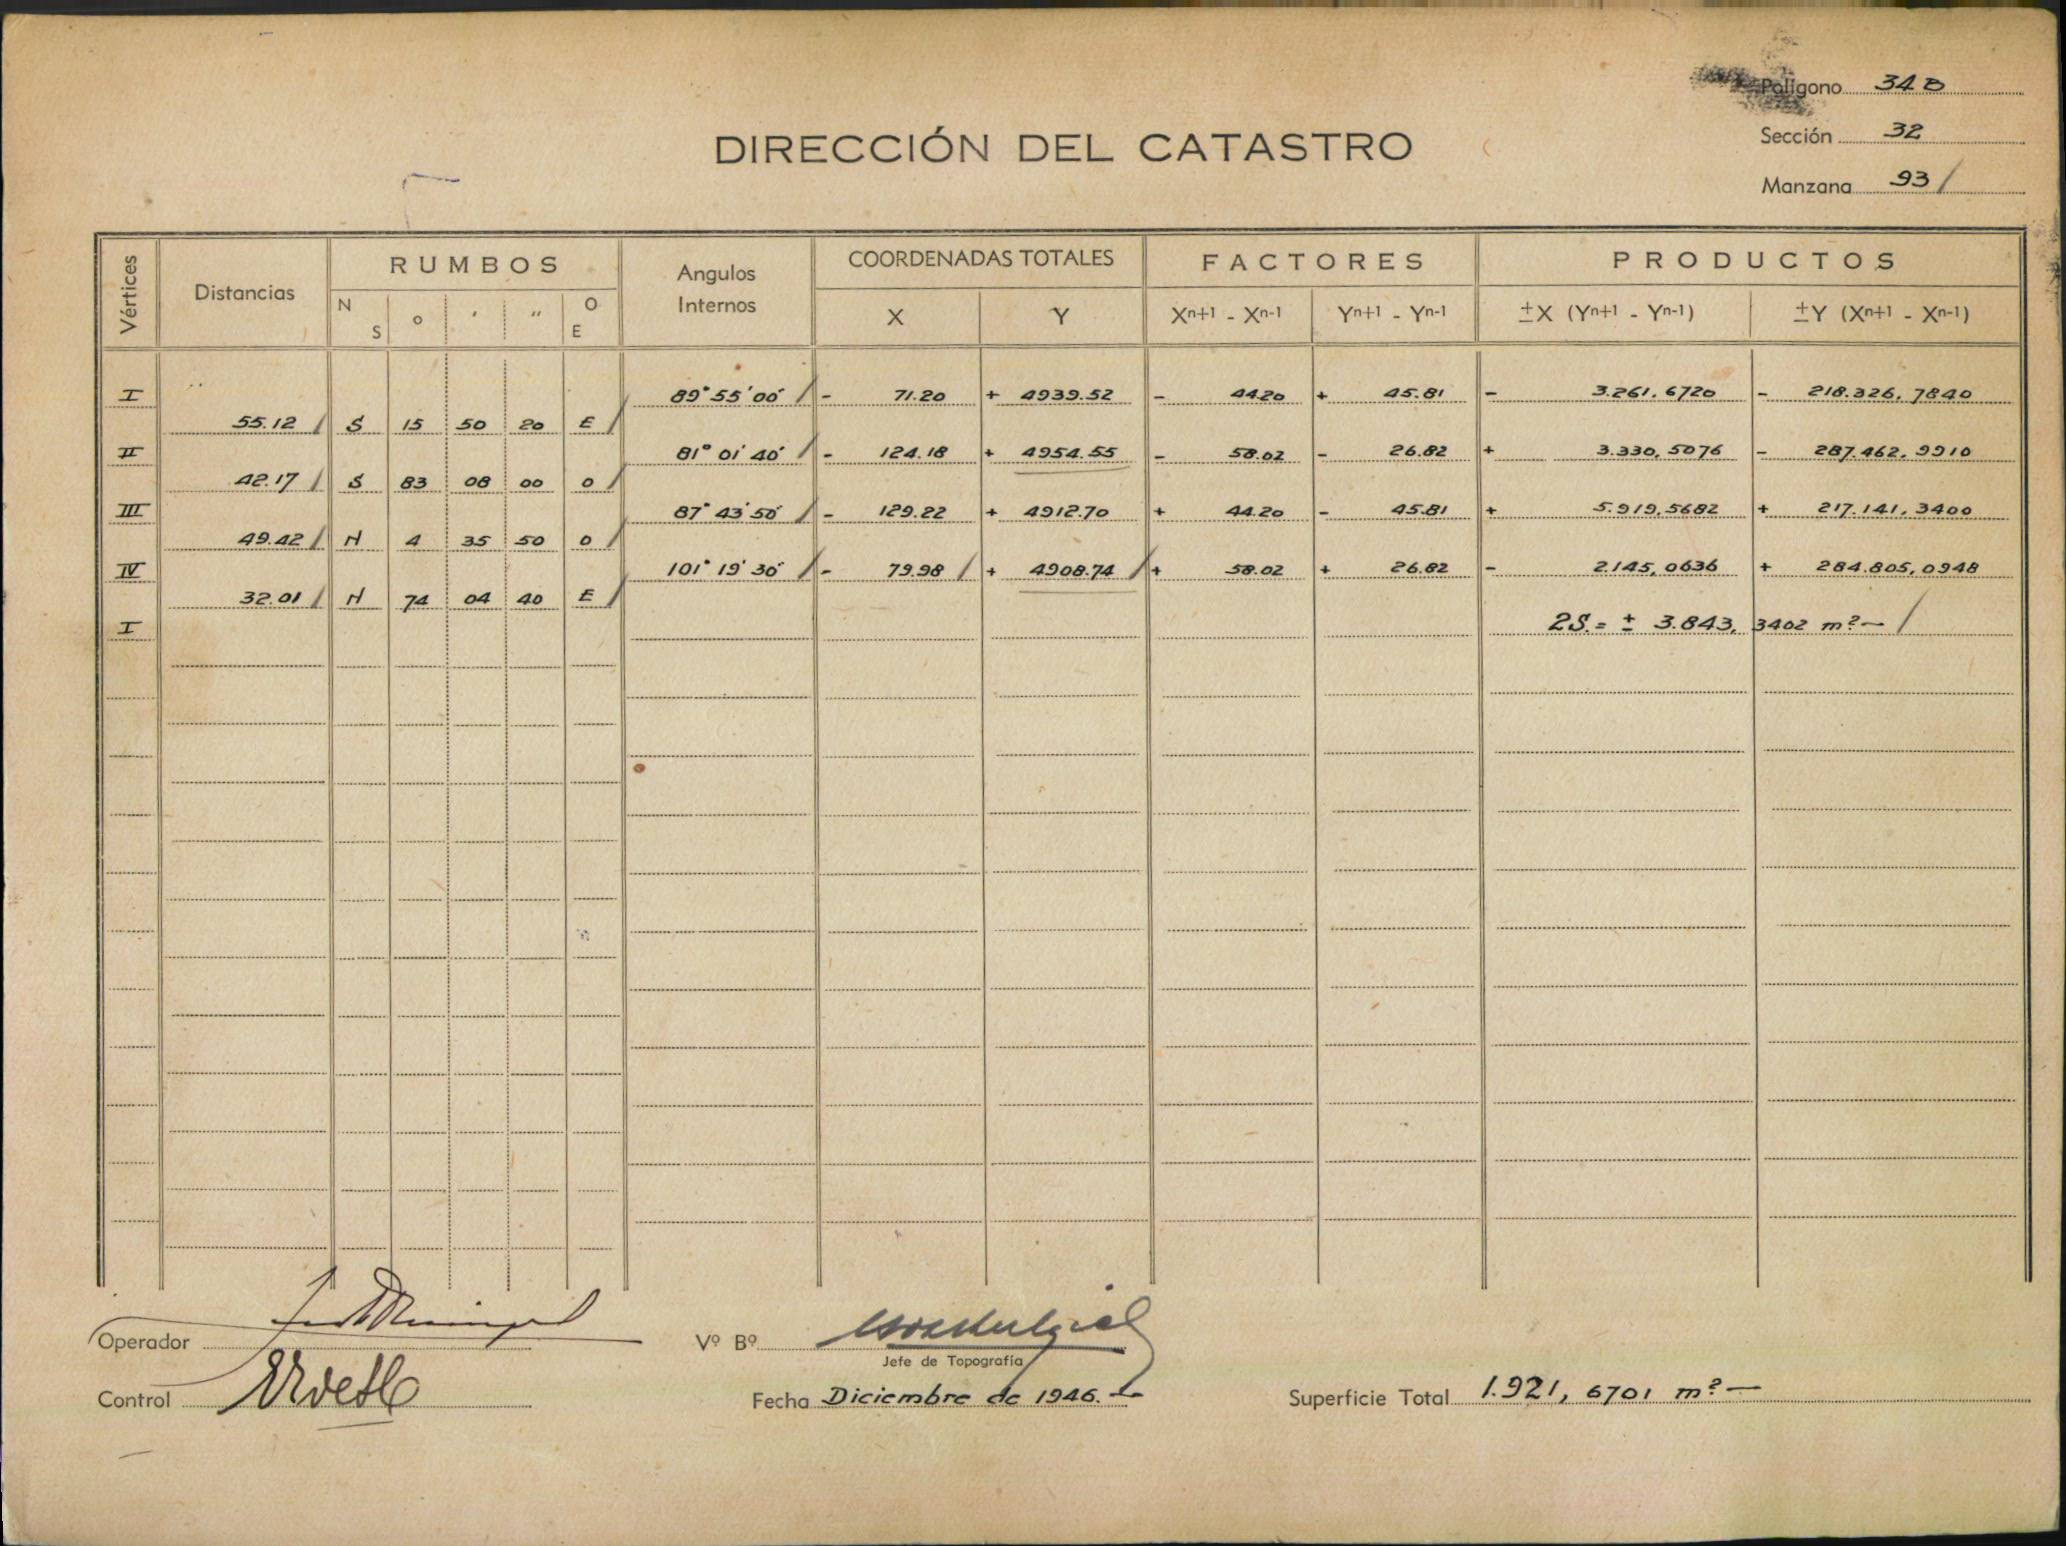 Polígono 34 B
Sección 32
Manzana 93 /
DIRECCIÓN DEL CATASTRO
Vértices Distancias RUMBOS Angulos Internos COORDENADAS TOTALES FACTORES PRODUCTOS
N S o ' " O E X Y Xn+1 - Xn-1 Yn+1 - Yn-1 ±X (Yn+1 - Yn-1) ±Y (Xn+1 - Xn-1)
I 89° 55' 00" / - 71.20 + 4939.52 - 44.20 + 45.81 - 3.261,6720 - 218.326,7840
55.12 / S 15 50 20 E /
II 81° 01' 40" / - 124.18 + 4954.55 - 58.02 - 26.82 + 3.330,5076 - 287.462,9910
42.17 / S 83 08 00 O /
III 87° 43' 50" / - 129.22 + 4912.70 + 44.20 - 45.81 + 5.919,5682 + 217.141,3400
49.42 / N 4 35 50 O /
IV 101° 19' 30" / - 79.98 / + 4908.74 / + 58.02 + 26.82 - 2.145,0636 + 284.805,0948
32.01 / N 74 04 40 E /
I 2S. = ± 3.843,3402 m² — /
Operador
Vº Bº
Jefe de Topografía
Control
Fecha Diciembre de 1946. —
Superficie Total 1.921,6701 m² —